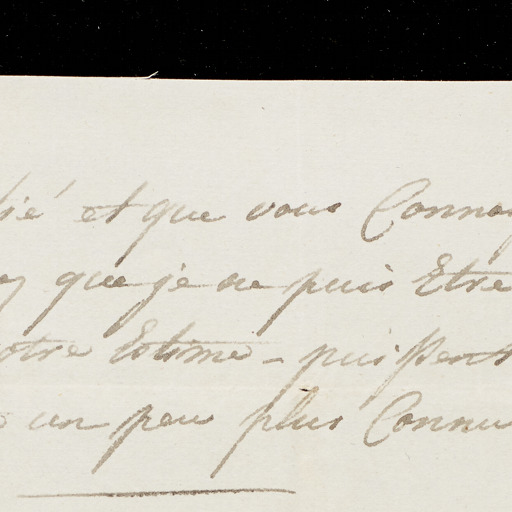 et que vous Connoy
que je ne puis Etre
otre Estime - puissent
un peu plus Connu